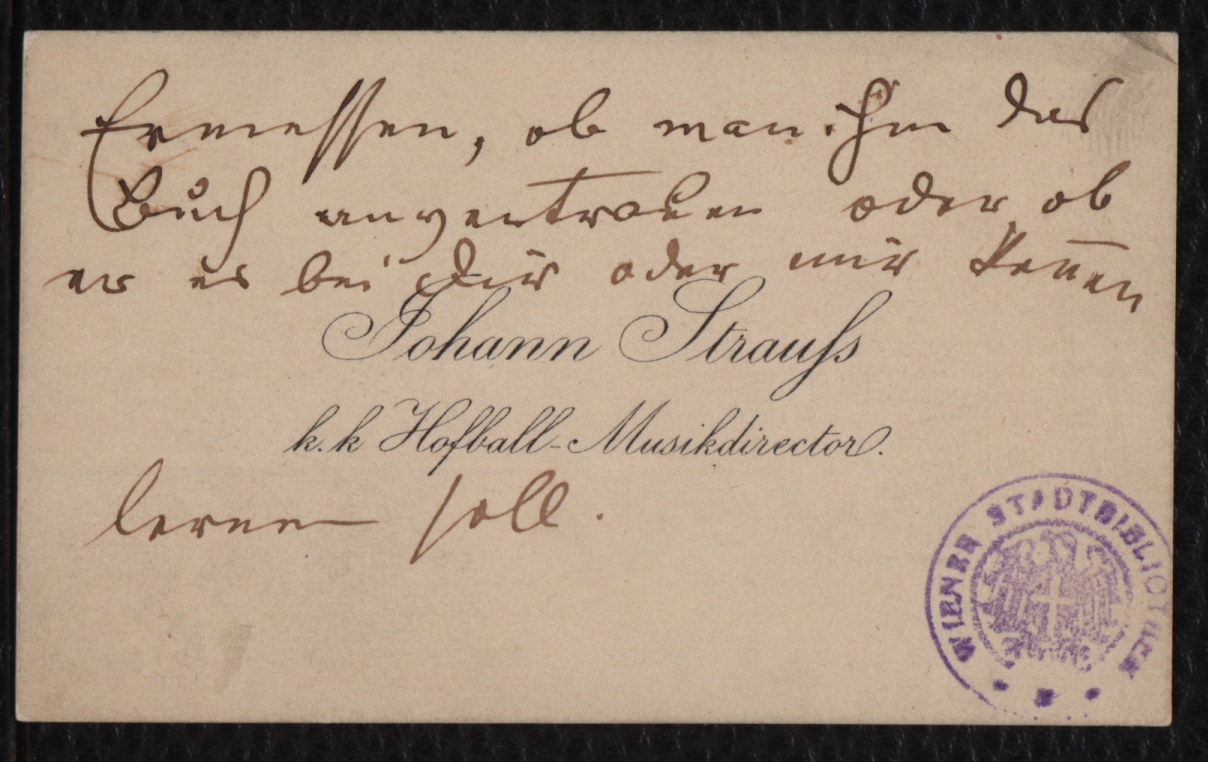 Ermessen, ob man ihm das
Buch anvertrauen oder ob
er es bei Dir oder mir kennen
Johann Strauſs
k.k Hofball-Musikdirector.
lernen soll.
WIENER STADTBIBLIOTHEK